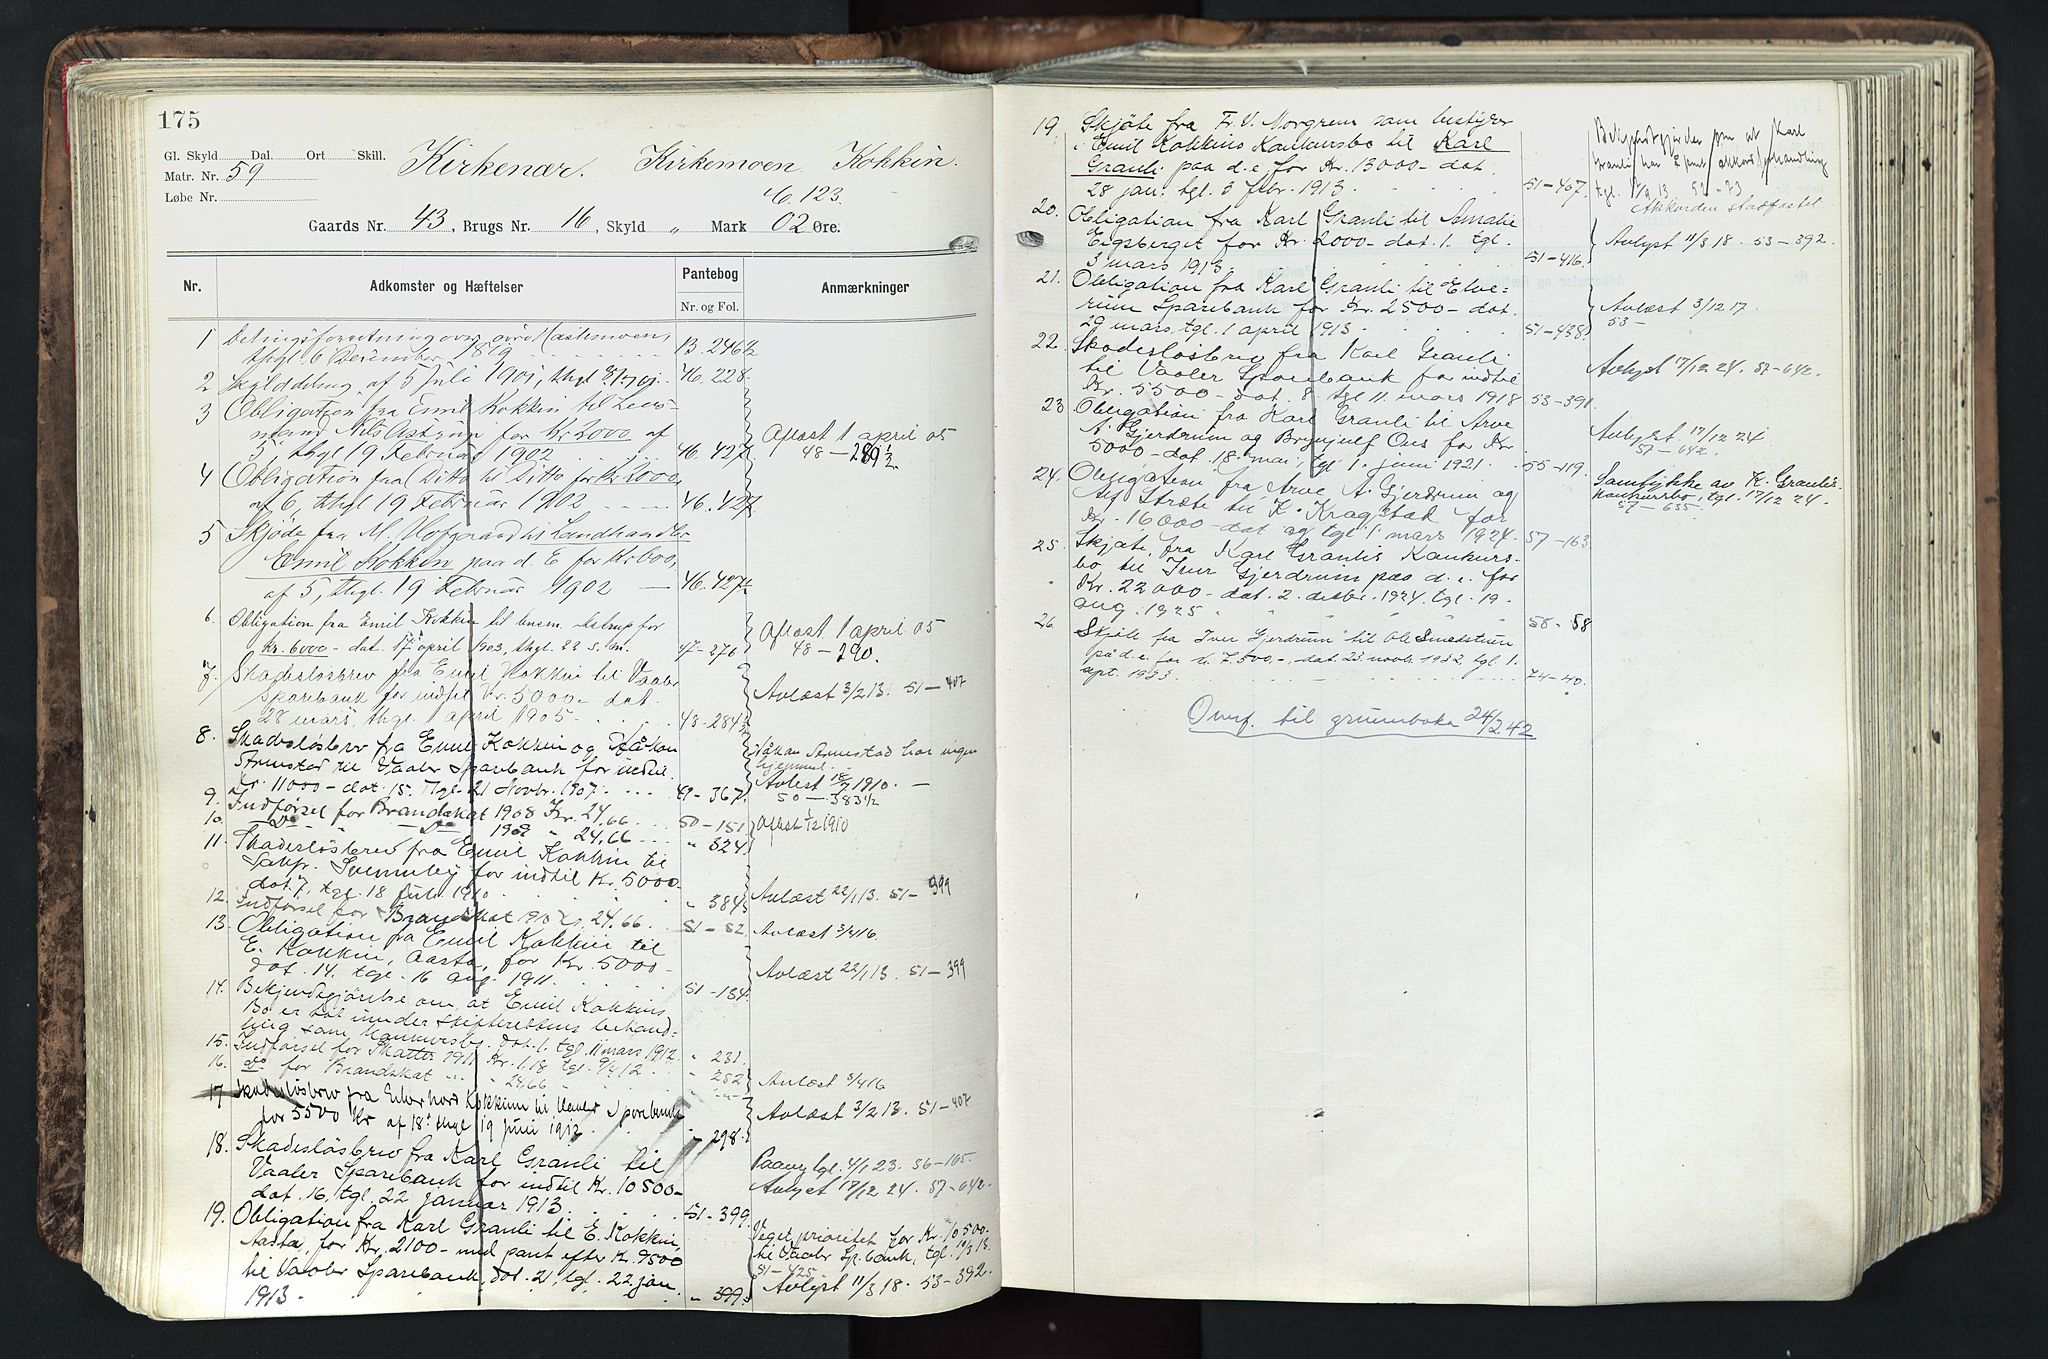 175
Gl. Skyld Dal. Ort Skill.
Matr. Nr. 59
Løbe Nr.
Kirkenær. Kirkemoen Kokkin.
16. 123.
Gaards Nr. 43, Brugs Nr. 16, Skyld „ Mark 02 Øre.
Nr.
Adkomster og Hæftelser
Pantebog
Nr. og Fol.
Anmærkninger
1 over øvre Hastemoen,
thgl 6 December 1819 13. 246½
2 Skylddeling af 5 Juli 1901, thgl 8/7 01. 46. 228.
3 Obligation fra Emil Kokkin til Lens-
mand Nils Astrup for Kr 2000 af
5, thgl 19 Februar 1902 46. 427
Aflæst 1 april 05
48 – 289½
4 Obligation fra Ditto til Ditto for Kr 2000,
af 6, thgl 19 Februar 1902 46. 427
5 Skjøde fra M. Hofgaard til Landhandler
Emil Kokkin paa d. E for Kr 600,
af 5, thgl. 19 Februar 1902 46. 427½
6. Obligation fra Emil Kokkin til lensm. Astrup for
kr. 6000 – dat. 17 april 1903, thgl. 22 s. m. 47 – 276
Aflæst 1 april 05
48 – 290.
7. Skadesløsbrev fra Emil Kokkin til Vaaler
Sparebank for indtil Kr. 5000 – dat.
28 mars, thgl. 1 april 1905. 48 – 284½
Avlæst 3/2 13. 51 – 407
8. Skadesløsbrev fra Emil Kokkin og Håkon
Armestad til Vaaler Sparebank for indtil
Kr. 11000 – dat. 15. tgl. 21 Novbr. 1907. 49 – 367.
Håkan Armestad har ingen
hjemmel.
Avlest 18/7 1910. –
50 – 383½
9. Indførsel for Brandskat 1908 Kr. 24,66 50 – 151
10. – Do – – Do – 1909 „ 24,66 „ 324
Aflæst 1/12 1910
11. Skadesløsbrev fra Emil Kokkin til
Sakfr. Svenneby for indtil Kr. 5000 –
dat. 7, tgl. 18 Juli 1910 „ 384½
Avlæst 22/1 13. 51 – 399
12. Indførsel for Brandskat 1910 Kr. 24.66. 51 – 82
Avlæst 3/4 16.
13. Obligation fra Emil Kokkin til
E. Kokkin, Aasta, for Kr. 5000 –
dat. 14. tgl. 16 aug. 1911. 51 – 184
Avlæst 22/1 13. 51 – 399
14. Bekjendtgjørelse om at Emil Kokkins
Bo er tat under skifterettens behand-
ling som Konkursbo. dat. 1. tgl. 11 mars 1912. „ 231.
15. Indførsel for Skatter 1911 Kr. 1.18 tgl. 9/4 12 „ 252
16. do for Brandskat „ „ 24,66 „ „ – „ –
Avlæst 3/4 16
17 Skadesløsbrev fra Kokkinn til Vaaler Sparebank
for 5500 Kr af 18. thgl 19 Juni 1912. – 298.
Avlæst 3/2 13. 51 – 407
18. Skadesløsbrev fra Karl Granli til
Vaaler Sparebank for indtil Kr. 10500 –
dat. 16, tgl. 22 januar 1913. 51 – 399.
Paany tgl. 4/1 23. 56 – 165.
Avlyst 17/12 24. 57 – 642.
19. Obligation fra Karl Granli til E. Kokkin,
Aasta, for Kr. 2100 – med pant efter Kr. 9500
til Vaaler Sparebank, dat. 21, tgl. 22. jan.
1913. „ 399.
Veget prioritet for Kr. 10500 –
til Vaaler Sp.bank, tgl. 10/3 13.
51 – 425
Avlyst 11/3 18. 53 – 392.
19. Skjøte fra Fr. V. Norgren som bestyrer
i Emil Kokkins Konkursbo til Karl
Granli paa d. e. for Kr. 13000 – dat.
28 jan. tgl. 3 febr. 1913. 51 – 407.
at Karl
Granli har akkordforhandling
tgl. 11/9 13. 52 – 73
Akkorden stadfæstet.
20. Obligation fra Karl Granli til Amalie
Eigsberget for Kr. 2000 – dat. 1. tgl.
3 mars 1913. 51 – 416.
Avlyst 11/3 18. 53 – 392.
21. Obligation fra Karl Granli til Elve-
rum Sparebank for Kr. 2500 – dat.
29 mars, tgl. 1 april 1913. 51 – 438
Avlæst 3/12 17.
53 –
22. Skadesløsbrev fra Karl Granli
til Vaaler Sparebank for indtil
Kr. 5500 – dat. 8 tgl. 11. mars 1918 53 – 391
Avlyst 17/12 24. 57 – 642.
23 Obligation fra Karl Granli til Arve
A. Gjerdrum og Brynjulf Ous for Kr.
5000 – dat. 18. mai, tgl. 1. juni 1921. 55 – 119.
Avlyst 17/12 24
57 – 642.
24. Obligation fra Arve A. Gjerdrum og
Alf Stræte til K. Kragstad for
Kr. 16000 – dat. og tgl. 1. mars 1924. 57 – 163
Samtykke av K. Granlis
konkursbo, tgl. 17/12 24.
57 – 635.
25. Skjøte fra Karl Granlis Konkurs-
bo til Iver Gjerdrum paa d. e. for
Kr. 22000 – dat. 2. desbr. 1924. tgl. 19.
aug. 1925 58 – 58
26 Skjøte fra Iver Gjerdrum til Ole Smedstuen
på d. e. for kr. 7.500,–, dat. 23. novbr. 1932, tgl. 1.
sept. 1933 74 – 40.
Overf. til grunnboka 24/2 42